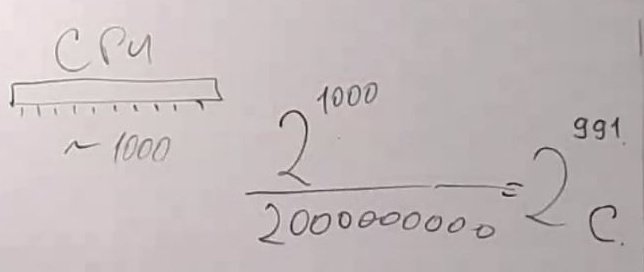 CPU
~ 1000
2^1000 / 2000000000 = 2^991 c.